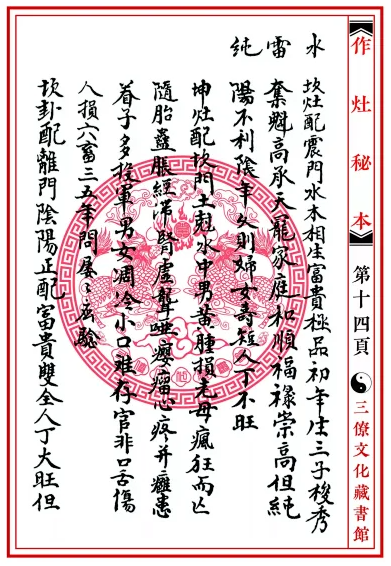 作灶秘本
第十四頁
三僚文化藏書館
水雷純
坎灶配震門水本相生富貴極品初年生三子梭秀
奪魁高承天寵家庭和順福祿崇高但純
陽不利陰年久則婦女壽短人丁不旺
坤灶配坎門土剋水中男黃腫損老母瘋狂而亡
隨胎蠱脹經滯腎虛聾啞癭瘤心疼并癰患
着子多投軍男女凋冷小口难存官非口舌傷
人損六畜三五年間屡屡病驗
坎卦配離門陰陽正配富貴雙全人丁大旺但